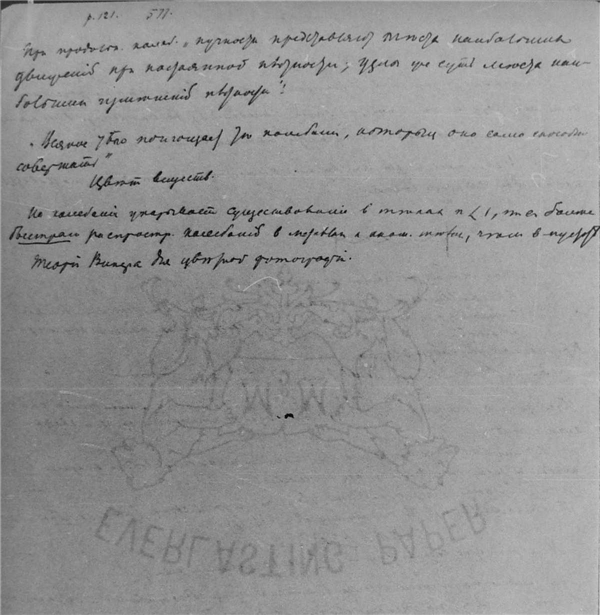 p. 121. 577.
При продольн. колеб. „ пучности представляют мѣста наибольшихъ
движеній при постоянной плотности; узлы же суть мѣста наи-
большихъ измѣненій плотности“!
„ Всякое тѣло поглощает те колебанія, которыя оно само способно
совершать“
Цвѣт веществ.
На колебаній указывает существованіе в тѣлах n < 1, т.е. более
быстрая распростр. колебаній в
Теорія Винера для цвѣтной фотографіи.
M & M
EVERLASTING PAPER